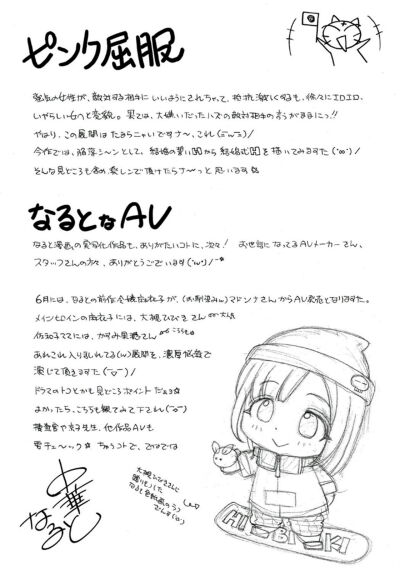 ピンク屈服
気丈の女性が、敵対する相手にいいようにされちゃって、抵抗激しくするも、徐々にエロエロ、
いやらしい女へと変貌。果ては、大嫌いだったハズの敵対相手のおうがままにっ!!
やはり、この展開は たまらニャいですナ〜、これ
今作では、陥落シーンとして、結婚の誓いから結婚式を描いてみますた
そんな見どころも含め楽しンで頂けたらナ〜っと思います☆
なるとなAV
なると漫画の実写化作品も、ありがたいコトに、次々! お世話になってるAVメーカーさん、
スタッフさんの方々、ありがとうございます
6月には、なるとの前作令嬢麻衣子が、(お馴染みw)マドンナさんからAV発売となりますた。
メインヒロインの麻衣子には、大槻ひびきさん
佐知子ママには、かずみさん こちらも
あれこれ入り乱れてる(w)展開を、濃厚低姿で
演じて頂きますた
ドラマのトコとかも見どころポイントだぉヨ☆
よかったら、こちらも観てみて下され
捜査官や京子先生、他作品AVも
要チェ〜ック☆ ちゅうコトで、ではでは
中華
なると
大槻ひびきさんに
贈りもした
なると色紙画のラフ
でんす
HIBIKI